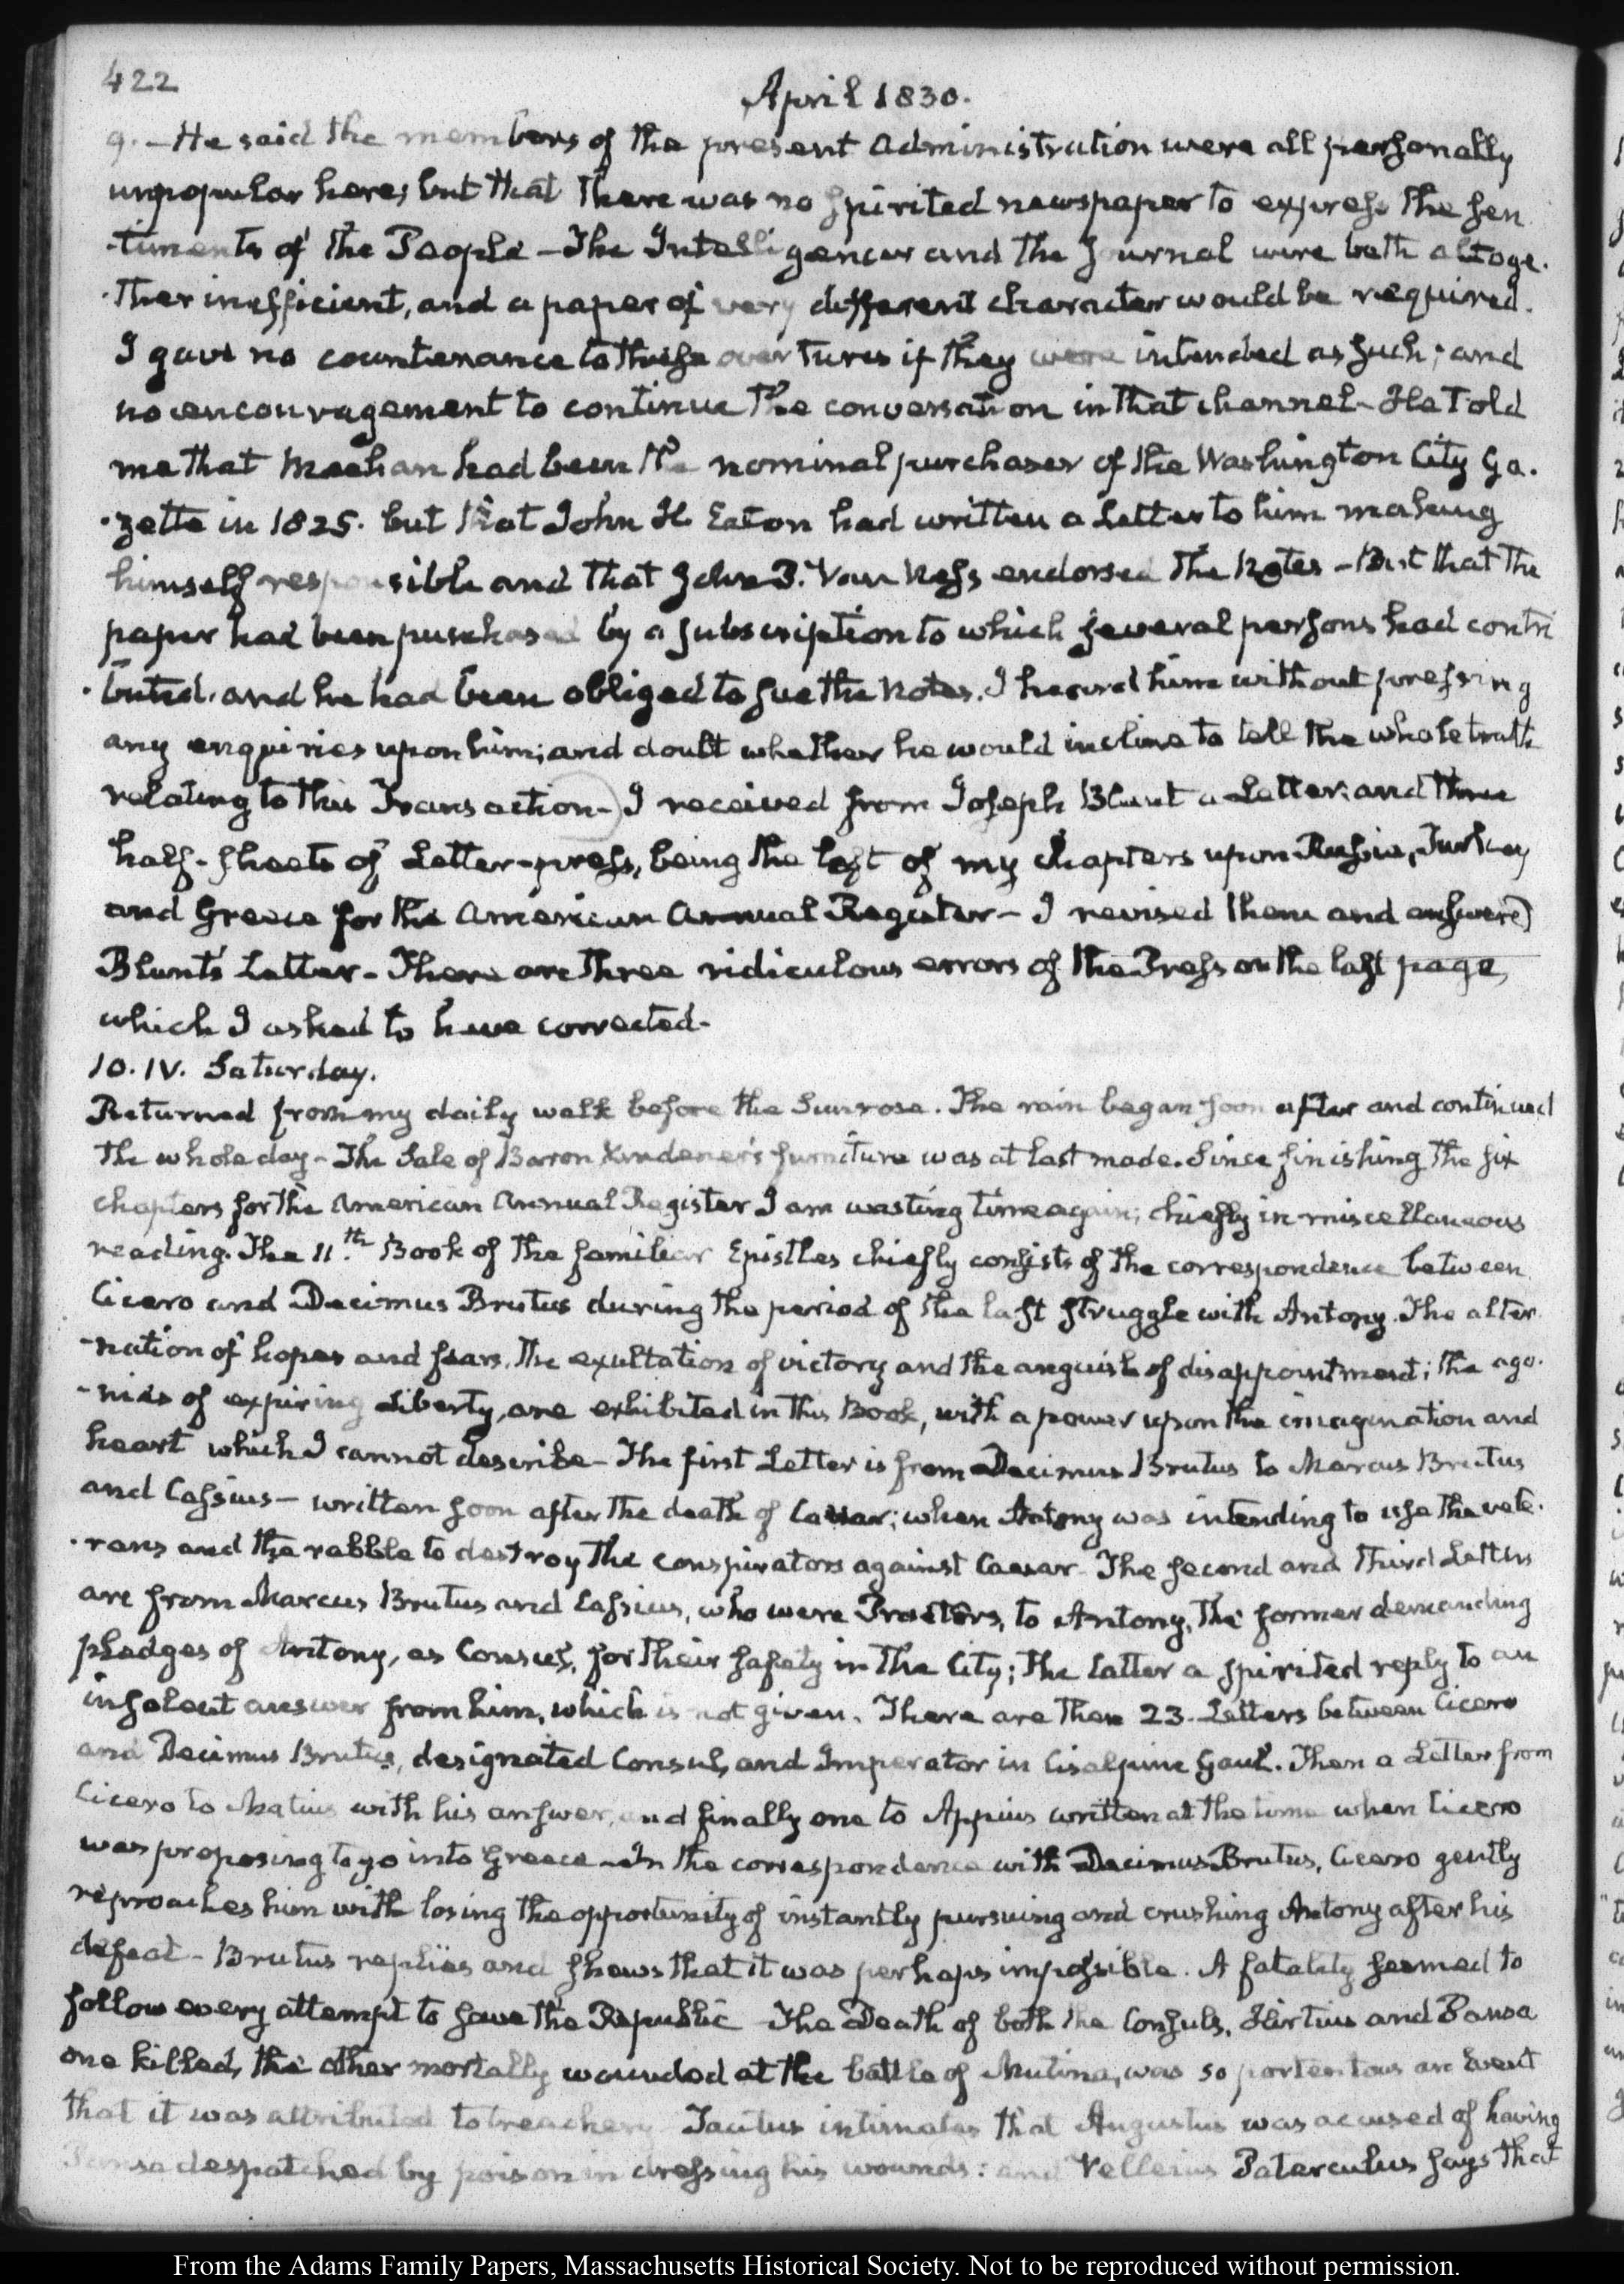 422
April 1830.
9. — He said the members of the present Administration were all personally
unpopular here; but that there was no spirited newspaper to express the sen
-timents of the People — The Intelligencer and the Journal were both altoge-
-ther inefficient, and a paper of very different character would be required.
I gave no countenance to these overtures if they were intended as such; and
no encouragement to continue the conversation in that channel - He told
me that Meehan had been the nominal purchaser of the Washington City Ga-
-zette in 1825. but that John H. Eaton had written a Letter to him making
himself responsible and that John P. Van Ness endorsed the Notes - But that the
paper had been purchased by a subscription to which several persons had contri
-buted. and he had been obliged to sue the Notes. I heard him without pressing
any enquiries upon him; and doubt whether he would incline to tell the whole truth
relating to this Transaction - I received from Joseph Blunt a Letter; and three
half-sheets of Letter-press, being the last of my chapters upon Russia, Turkey
and Greece for the American Annual Register - I revised them and answered
Blunt's Letter - There are three ridiculous errors of the Press on the last page,
which I asked to have corrected -
10. IV. Saturday.
Returned from my daily walk before the Sun rose. The rain began soon after and continued
the whole day - The Sale of Baron Krudener's furniture was at last made. Since finishing the six
chapters for the American Annual Register I am wasting time again; chiefly in miscellaneous
reading. The 11.th Book of the familiar Epistles chiefly consists of the correspondence between
Cicero and Decimus Brutus during the period of the last struggle with Antony. The alter
-nation of hopes and fears, the exultation of victory and the anguish of disappointment; the ago-
-nies of expiring Liberty, are exhibited in this Book, with a power upon the imagination and
heart which I cannot describe - The first Letter is from Decimus Brutus to Marcus Brutus
and Cassius - written soon after the death of Caesar; when Antony was intending to use the vete-
-rans and the rabble to destroy the conspirators against Caesar - The second and third Letters
are from Marcus Brutus and Cassius, who were Praetors, to Antony, the former demanding
pledges of Antony, as Consul, for their safety in the City; the latter a spirited reply to an
insolent answer from him, which is not given. There are then 23. Letters between Cicero
and Decimus Brutus, designated Consul, and Imperator in Cisalpine Gaul. Then a Letter from
Cicero to Matius with his answer, and finally one to Appius written at the time when Cicero
was proposing to go into Greece - In the correspondence with Decimus Brutus, Cicero gently
reproaches him with losing the opportunity of instantly pursuing and crushing Antony after his
defeat - Brutus replies and shews that it was perhaps impossible. A fatality seemed to
follow every attempt to save the Republic - The Death of both the Consuls, Hirtius and Pansa
one killed, the other mortally wounded at the battle of Mutina, was so portentous an Event
that it was attributed to treachery Tacitus intimates that Augustus was accused of having
Pansa despatched by poison in dressing his wounds: and Velleius Paterculus says that
From the Adams Family Papers, Massachusetts Historical Society. Not to be reproduced without permission.